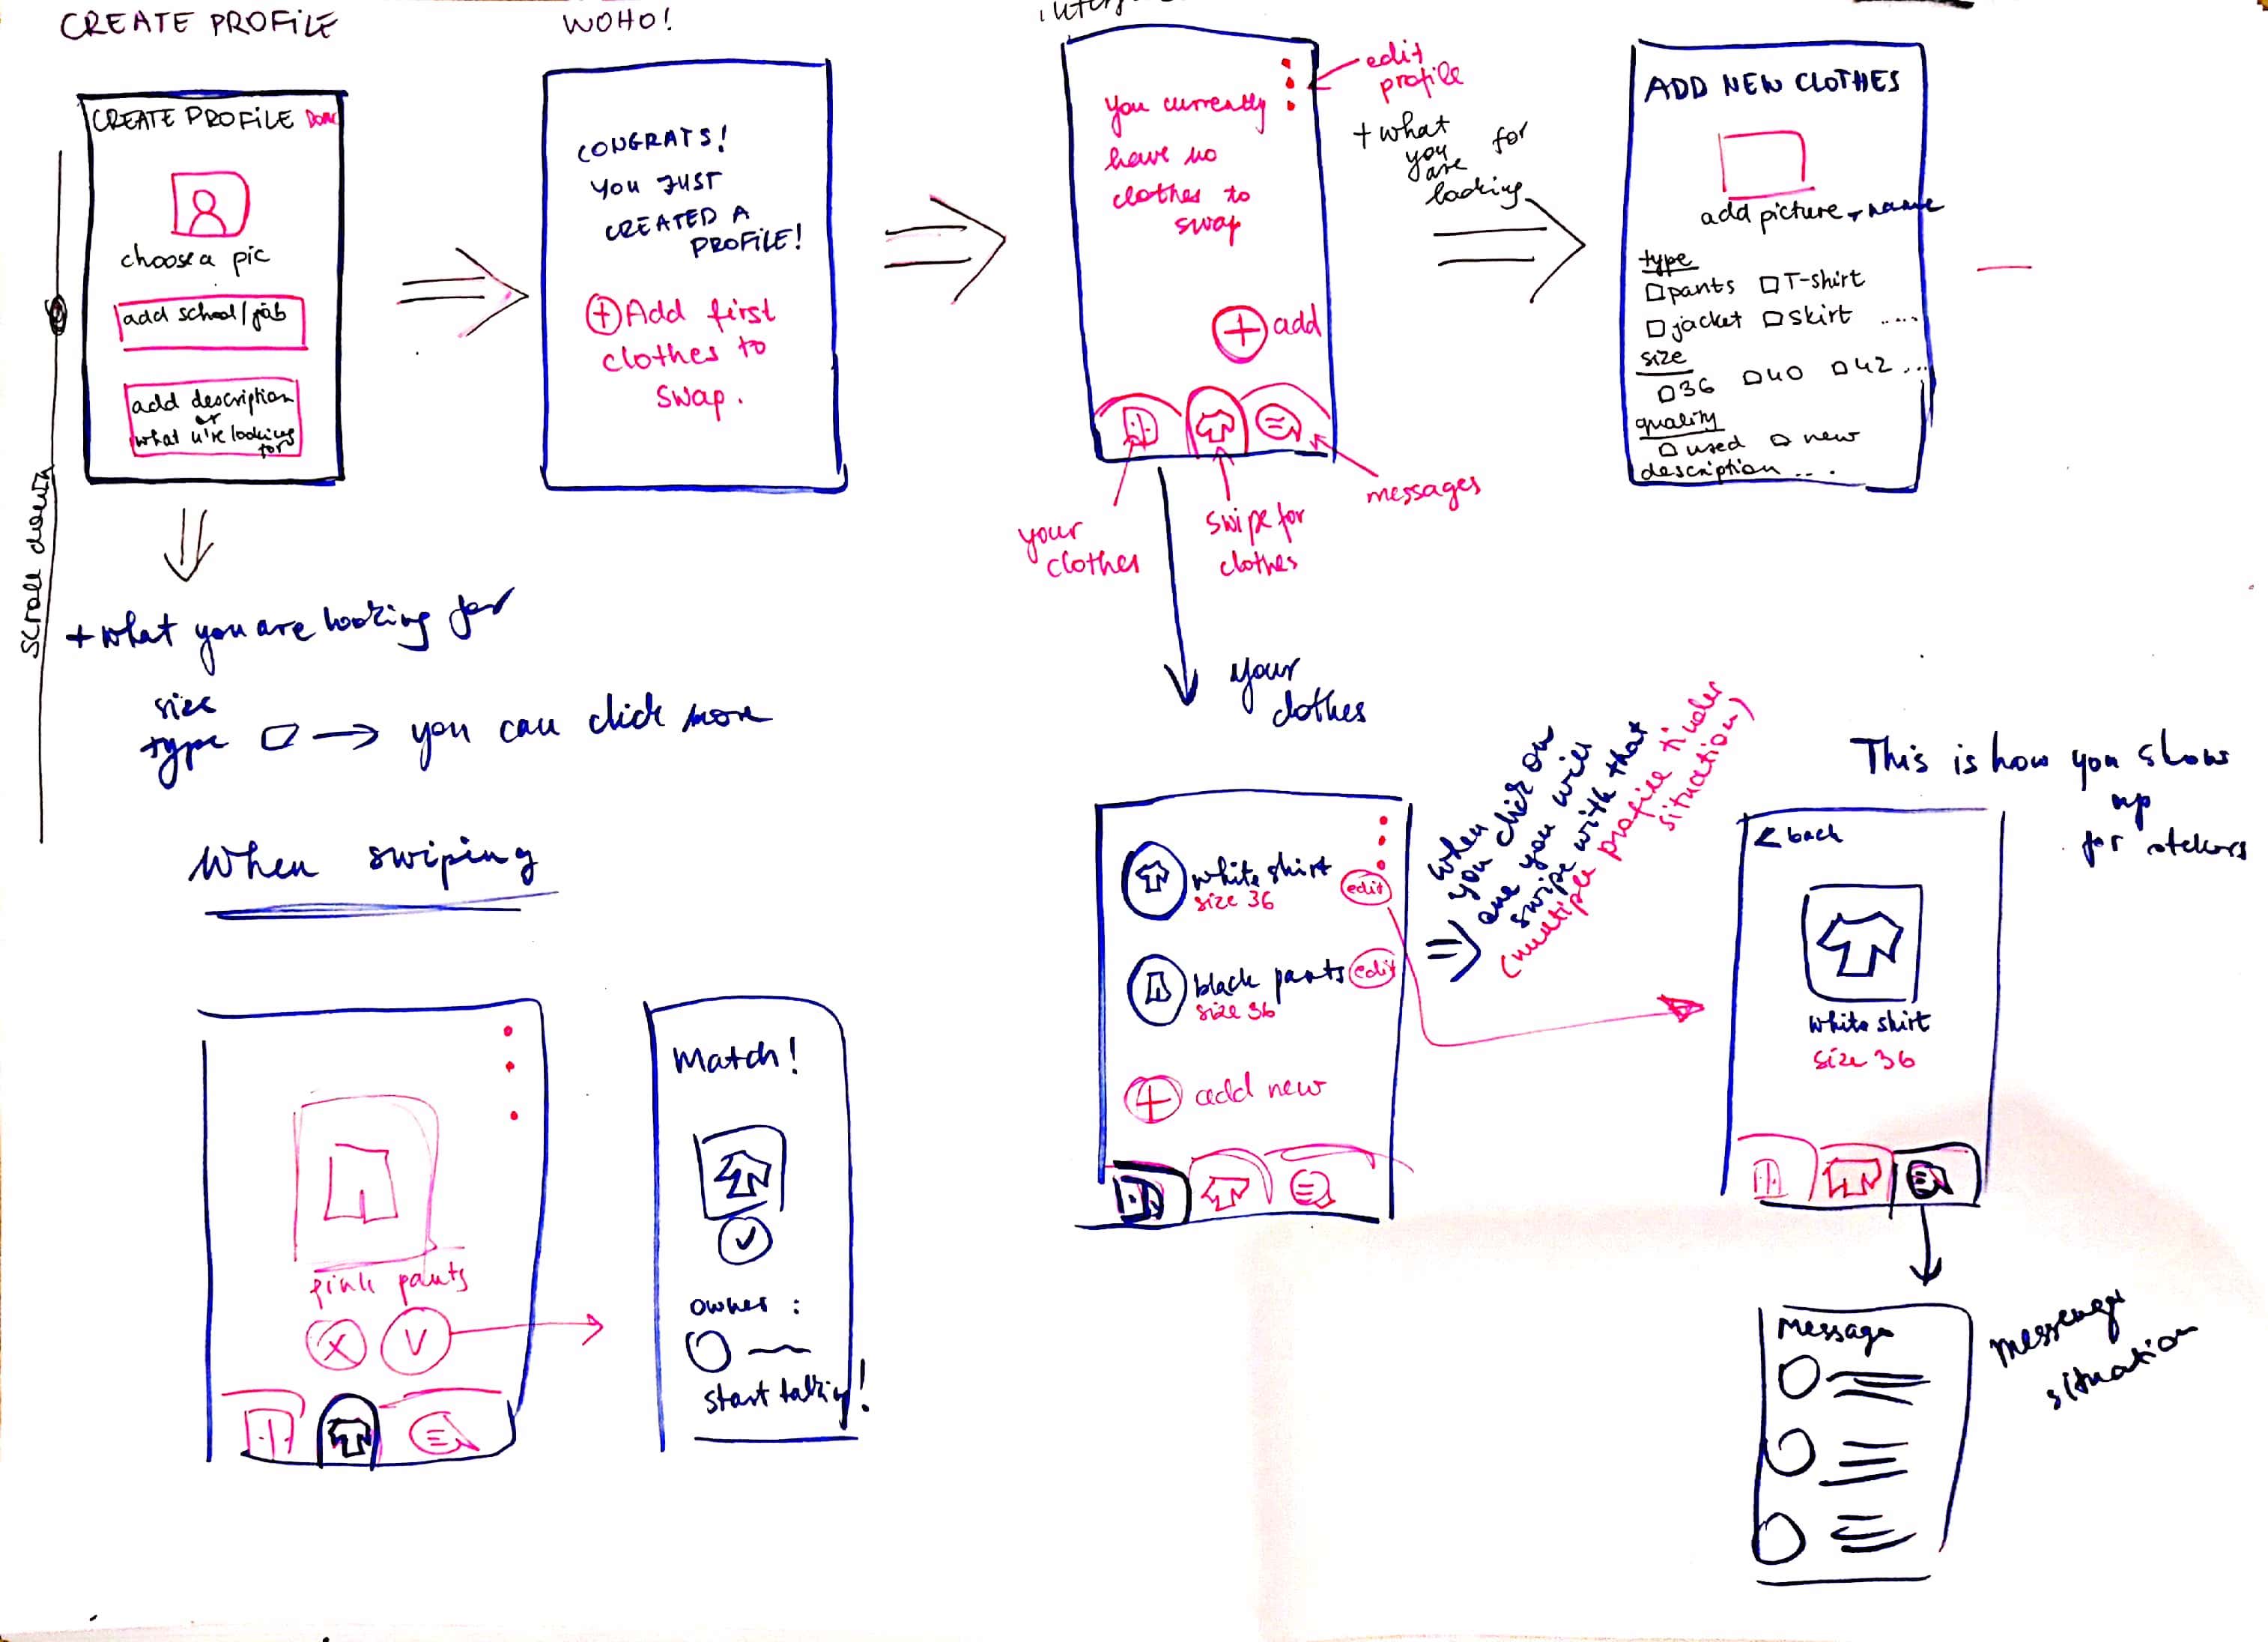 CREATE PROFILE
WOHO!
CREATE PROFILE
choose a pic
add school/job
add description
or
what u're looking
for
scroll down
+ what you are looking for
size
type → you can click more
CONGRATS!
YOU JUST
CREATED A
PROFILE!
+ Add first
clothes to
swap.
you currently
have no
clothes to
swap
+ add
edit
profile
your
clothes
swipe for
clothes
messages
+ what
you
are
looking
for
ADD NEW CLOTHES
add picture + name
type
pants T-shirt
jacket skirt .....
size
36 40 42 ...
quality
used new
description ...
your
clothes
white shirt
size 36
edit
black pants
size 36
edit
+ add new
⇒ when
you click on
one you will
swipe with that
(multiple profile tinder
situation)
This is how you show
up
for others
< back
white shirt
size 36
Message
messenger
situation
When swiping
pink pants
X V
Match!
owner :
start talking!